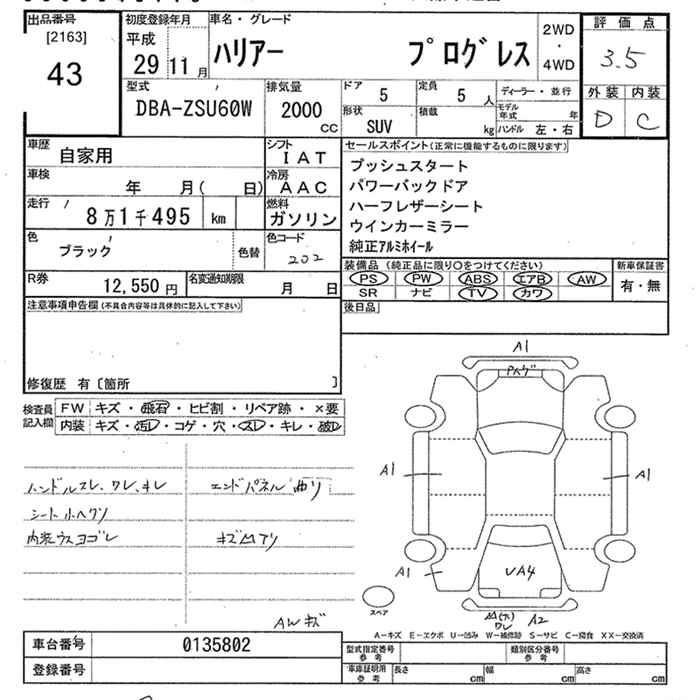 出品番号
[2163]
43
初度登録年月
平成
29 11 月
車名・グレード
ハリアー プログレス
2WD
・
4WD
評価点
3.5
外装 内装
D C
型式
DBA-ZSU60W
排気量
2000
cc
ドア
5
定員
5 人
形状
SUV
積載
kg
ディーラー・並行
モデル年式 年
ハンドル 左・右
車歴
自家用
シフト
IAT
車検
年 月( 日)
冷房
AAC
走行
8万1千495 km
燃料
ガソリン
色
ブラック
色替
色コード
202
R券
12,550 円
名変通知期限
月 日
セールスポイント(正常に機能するものに限ります)
プッシュスタート
パワーバックドア
ハーフレザーシート
ウインカーミラー
純正アルミホイール
装備品(純正品に限り○をつけてください)
PS PW ABS エアB AW
SR ナビ TV カワ
新車保証書
有・無
後日品
注意事項申告欄(不具合内容等は具体的に記入して下さい)
修復歴 有〔箇所 〕
検査員記入欄
FW キズ・飛石・ヒビ割・リペア跡・×要
内装 キズ・汚レ・コゲ・穴・スレ・キレ・破レ
ハンドルスレ、ワレ、キレ
シート小ヘクリ
内装ウスヨゴレ
エンドパネル曲リ
キズ凹アリ
AWキズ
A1
A1
A1
A1
VA4
A2
ワレ
スペア
A-キズ E-エクボ U-凹み W-補修跡 S-サビ C-腐食 XX-交換済
車台番号
0135802
登録番号
型式指定番号
参考
類別区分番号
参考
車庫証明用
参考
長さ cm
幅 cm
高さ cm